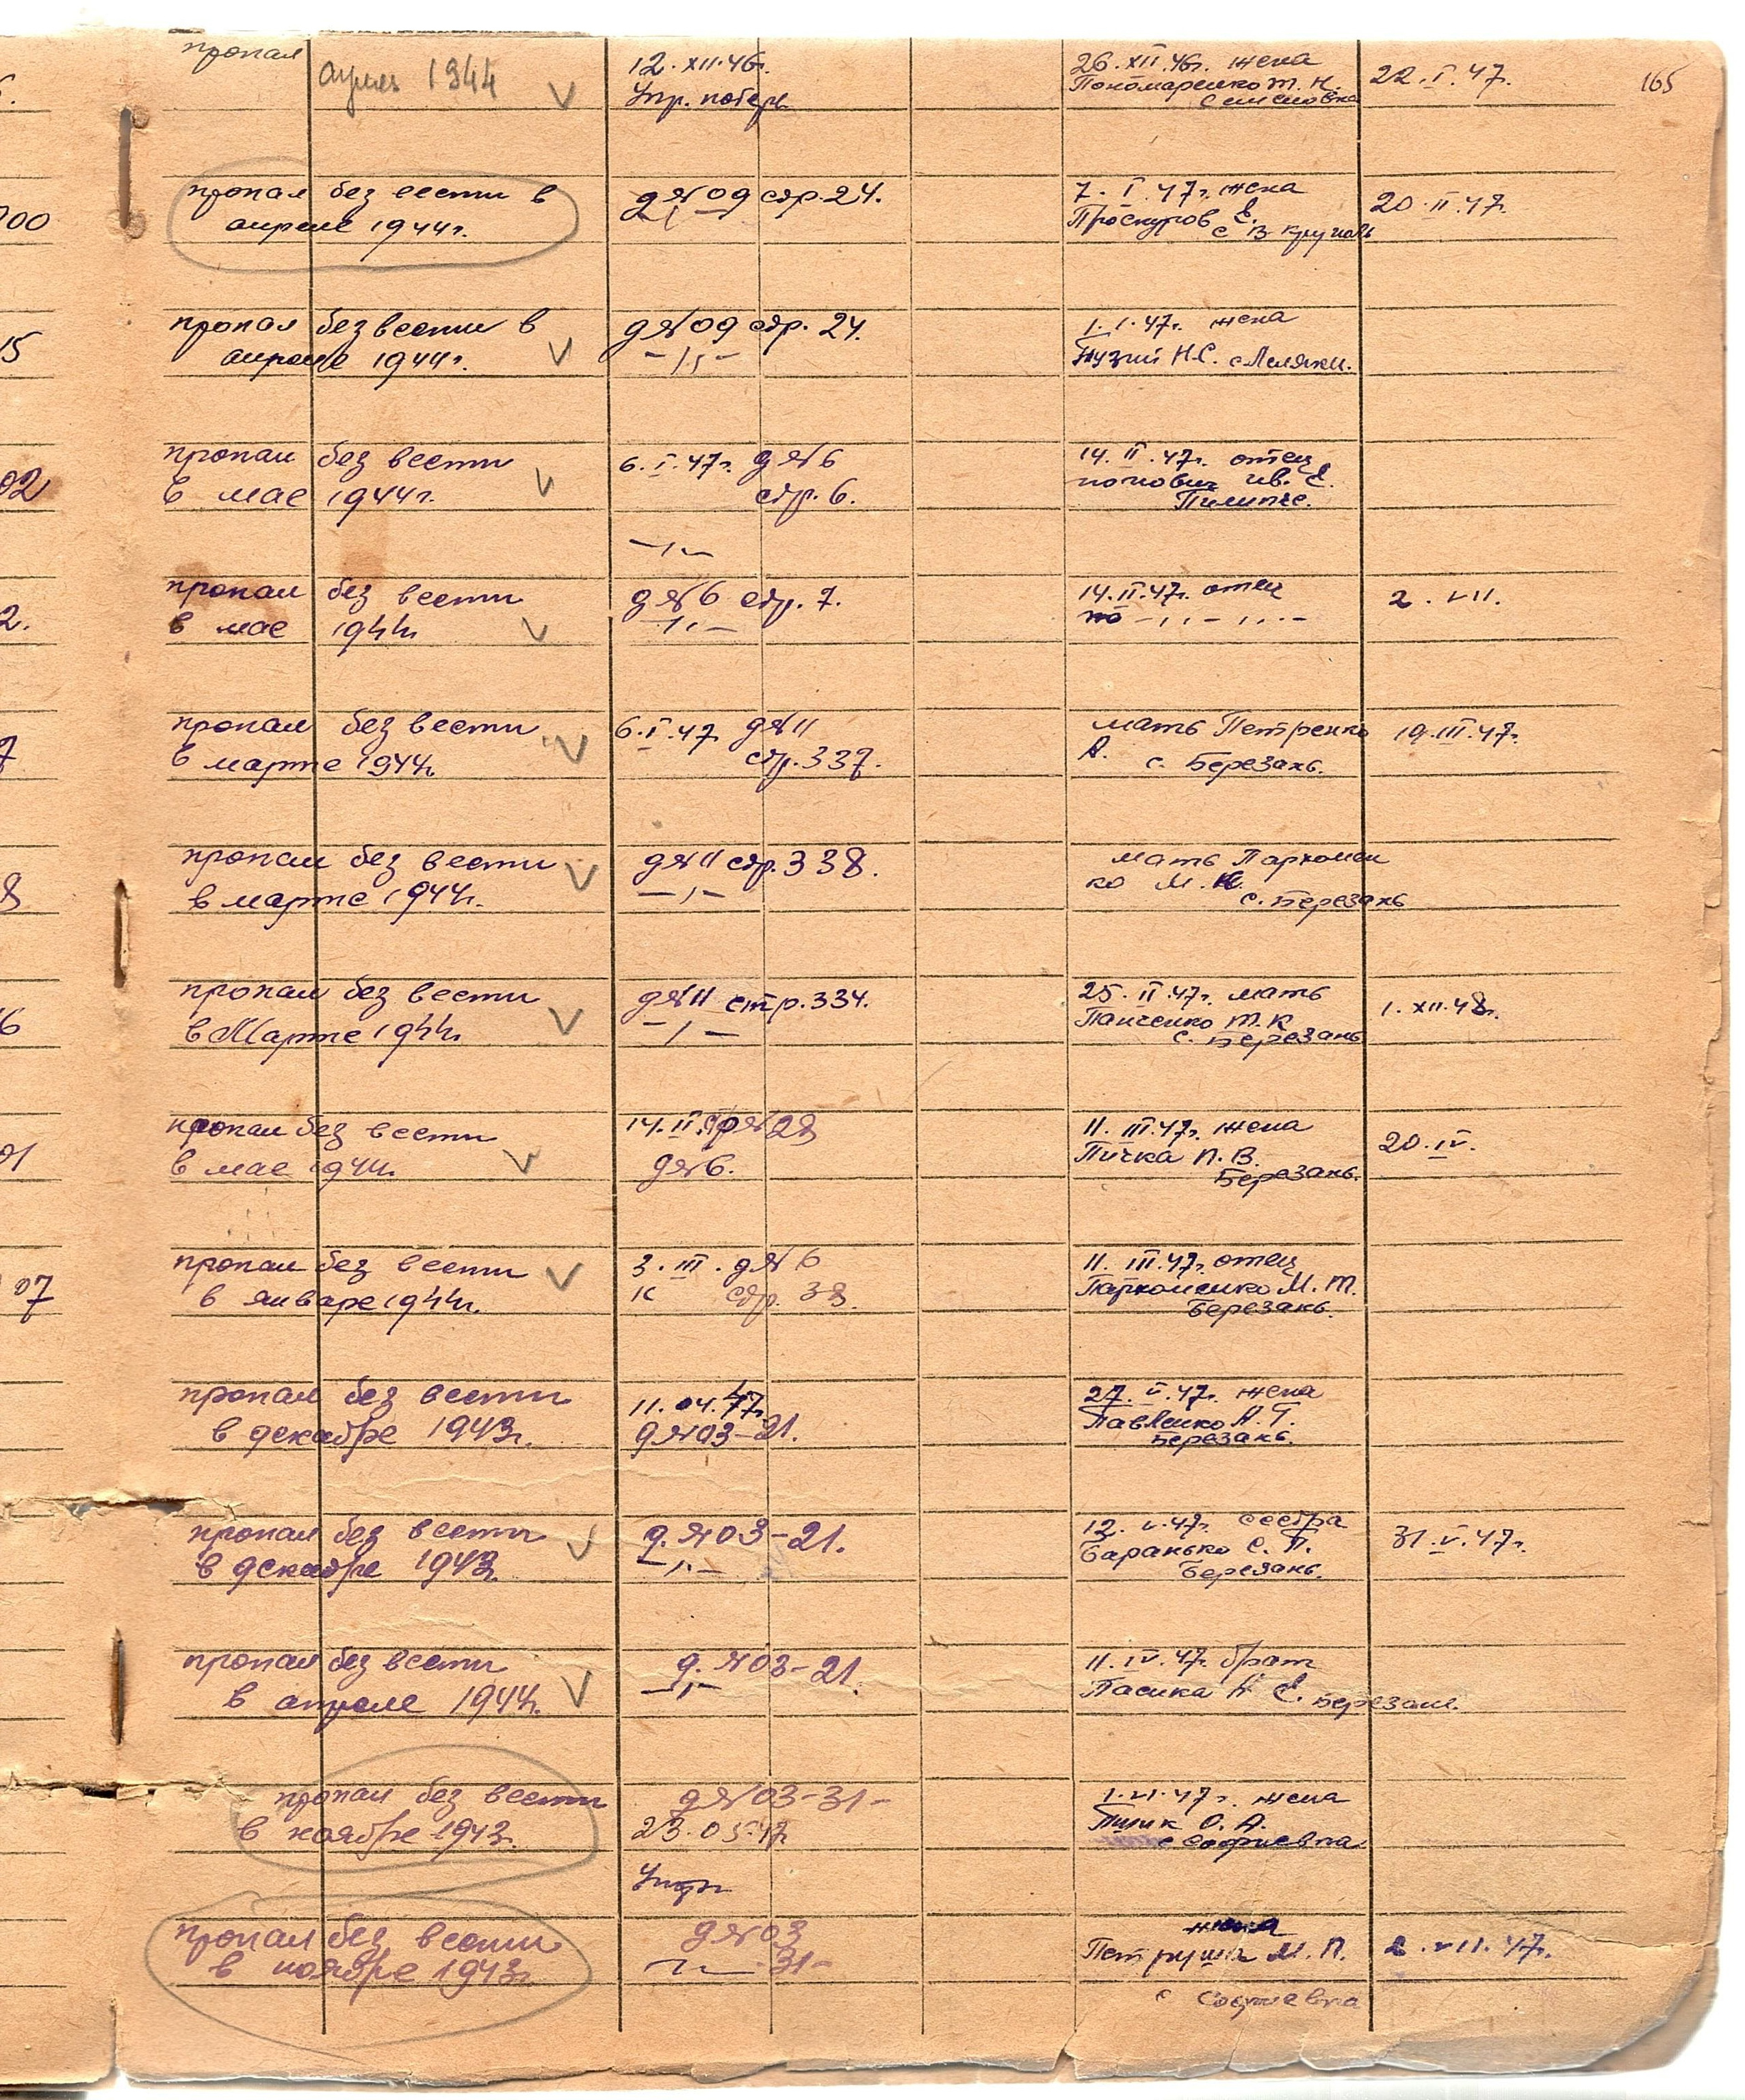 165
пропал
апрель 1944 V
12.XII.46г.
Упр. потерь
26.XII.46г. жена
Пономаренко Т. Н.
Семеновка
22.I.47.
00
пропал без вести в
апреле 1944г.
д№09 стр.24.
7.I.47г. жена
Проскуров Е.
с В Круполь
20.II.47.
15
пропал без вести в
апреле 1944г. V
д№09 стр. 24.
-„-
1.I.47г. жена
Нузий Н.С. с Леляки.
02
пропал без вести
в мае 1944г. V
6.I.47г. д№6
стр.6.
14.II.47г. отец
попович Ив. Е.
-„-
2.
пропал без вести
в мае 1944г. V
д№6 стр.7.
-„-
14.II.47г. отец
по -„-„-
2.VII.
7
пропал без вести
в марте 1944г. V
6.I.47 д№11
стр.337.
мать Петренко
А. с. Березань.
19.III.47г.
8
пропал без вести
в марте 1944г. V
д№11 стр.338.
-„-
мать Пархомен
ко М.
с. Березань
6
пропал без вести
в Марте 1944г. V
д№11 стр.334.
-„-
25.II.47г. мать
Панченко Т.К
с. Березань
1.XII.48г.
01
пропал без вести
в мае 1944г. V
14.II. №28
д№6.
11.III.47г. жена
Пичка П.В.
Березань.
20.IV.
07
пропал без вести V
в январе 1944г.
3.III. д№6
к стр. 38.
11.III.47г. отец
Пархоменко М.Т.
Березань.
пропал без вести
в декабре 1943г.
11.04.47г.
д№03-21.
27.V.47г. жена
Павленко А.Г.
Березань.
пропал без вести V
в декабре 1943г.
д.№03-21.
-„-
12.V.47г. сестра
Баранько С.П.
Березань.
31.V.47г.
пропал без вести
в апреле 1944г. V
д.№03-21.
-„-
11.IV.47г. брат
Пасика Н Е. Березань.
пропал без вести
в ноябре 1943г.
д№03-31-
23.05.47г
1.VI.47г. жена
Пилик О.А.
с Софиевка
Упр
пропал без вести
в ноябре 1943г.
д№03
-„- 31-
жена
М.П.
с Софиевка
2.VII.47г.